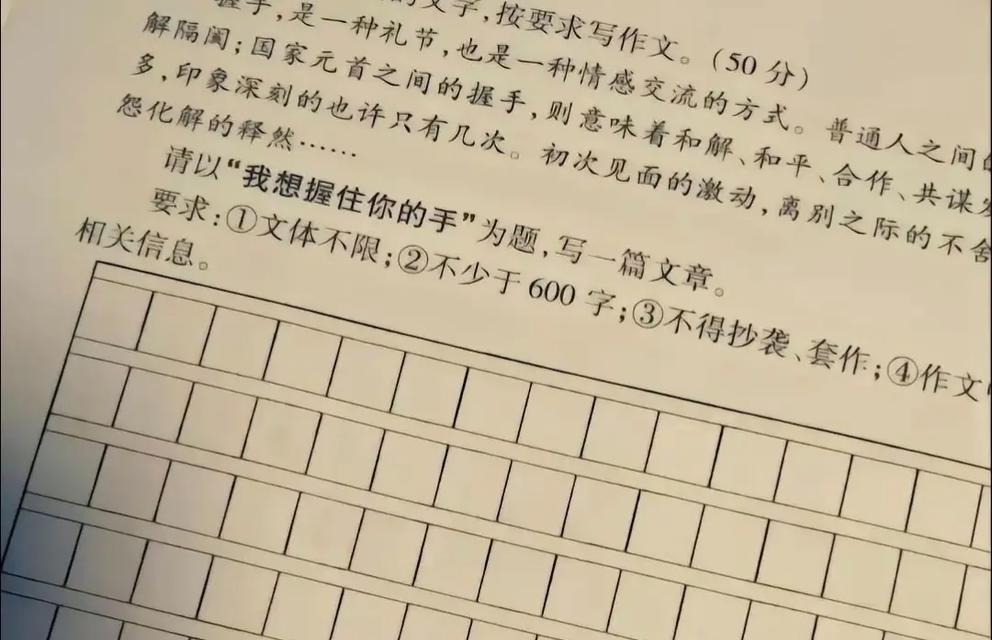 的文字,按要求写作文。(50 分)
握手,是一种礼节,也是一种情感交流的方式。普通人之间的
解隔阂;国家元首之间的握手,则意味着和解、和平、合作、共谋发
多,印象深刻的也许只有几次。初次见面的激动,离别之际的不舍
怨化解的释然……
请以“我想握住你的手”为题,写一篇文章。
要求:①文体不限;②不少于 600 字;③不得抄袭、套作;④作文
相关信息。